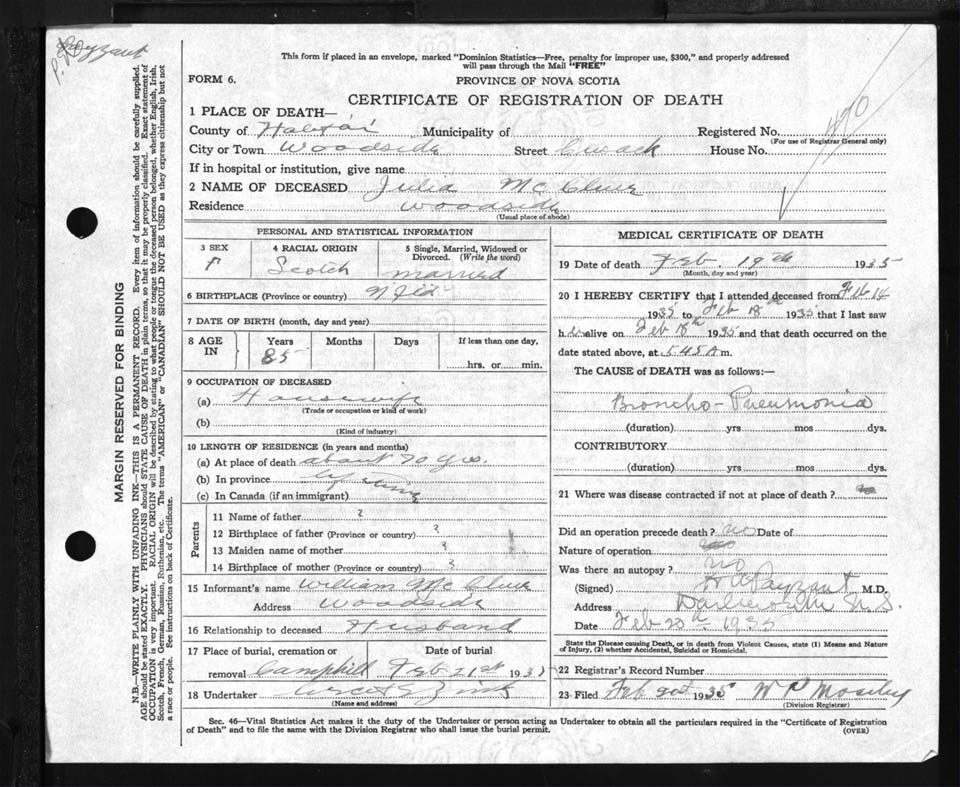 Payzant
This form if placed in an envelope, marked "Dominion Statistics—Free, penalty for improper use, $300," and properly addressed
will pass through the Mail "FREE"
FORM 6.
PROVINCE OF NOVA SCOTIA
CERTIFICATE OF REGISTRATION OF DEATH
1 PLACE OF DEATH—
County of Halifax Municipality of Registered No. 490
(For use of Registrar General only)
City or Town Woodside Street Cusack House No.
If in hospital or institution, give name
2 NAME OF DECEASED Julia McClure
Residence Woodside
(Usual place of abode)
MARGIN RESERVED FOR BINDING
N.B.—WRITE PLAINLY WITH UNFADING INK—THIS IS A PERMANENT RECORD. Every item of information should be carefully supplied.
AGE should be stated EXACTLY. PHYSICIANS should STATE CAUSE OF DEATH in plain terms, so that it may be properly classified. Exact statement of
OCCUPATION is very important. RACIAL ORIGIN will be described by stating to what people or tongue the deceased person belonged, whether English, Irish,
Scotch, French, German, Russian, Ruthenian, etc. The terms "AMERICAN" or "CANADIAN" SHOULD NOT BE USED as they express citizenship but not
a race or people. See instructions on back of Certificate.
PERSONAL AND STATISTICAL INFORMATION
3 SEX F
4 RACIAL ORIGIN Scotch
5 Single, Married, Widowed or
Divorced. (Write the word)
married
6 BIRTHPLACE (Province or country) Nfld
7 DATE OF BIRTH (month, day and year)
8 AGE IN Years 85 Months Days If less than one day,
hrs. or min.
9 OCCUPATION OF DECEASED
(a) Housewife
(Trade or occupation or kind of work)
(b)
(Kind of industry)
10 LENGTH OF RESIDENCE (in years and months)
(a) At place of death about 70 yrs.
(b) In province life time
(c) In Canada (if an immigrant)
Parents
11 Name of father ?
12 Birthplace of father (Province or country) ?
13 Maiden name of mother ?
14 Birthplace of mother (Province or country) ?
15 Informant's name William McClure
Address Woodside
16 Relationship to deceased Husband
17 Place of burial, cremation or
removal Camphill
Date of burial
Feb 21st 1935
18 Undertaker Zink
(Name and address)
MEDICAL CERTIFICATE OF DEATH
19 Date of death Feb. 19th 1935
(Month, day and year)
20 I HEREBY CERTIFY that I attended deceased from Feb 14
1935 to Feb 18th 1935 that I last saw
her alive on Feb 18th 1935 and that death occurred on the
date stated above, at 5.45 A m.
The CAUSE of DEATH was as follows:—
Broncho-Pneumonia
(duration) yrs mos dys.
CONTRIBUTORY
(duration) yrs mos dys.
21 Where was disease contracted if not at place of death?
Did an operation precede death? no Date of
Nature of operation
Was there an autopsy? no
(Signed) Payzant M.D.
Address Dartmouth N.S.
Date Feb 20th 1935
State the Disease causing Death, or in death from Violent Causes, state (1) Means and Nature
of Injury, (2) whether Accidental, Suicidal or Homicidal.
22 Registrar's Record Number
23 Filed Feb 20th 1935 W P Moseley
(Division Registrar)
Sec. 46—Vital Statistics Act makes it the duty of the Undertaker or person acting as Undertaker to obtain all the particulars required in the "Certificate of Registration
of Death" and to file the same with the Division Registrar who shall issue the burial permit.
(OVER)